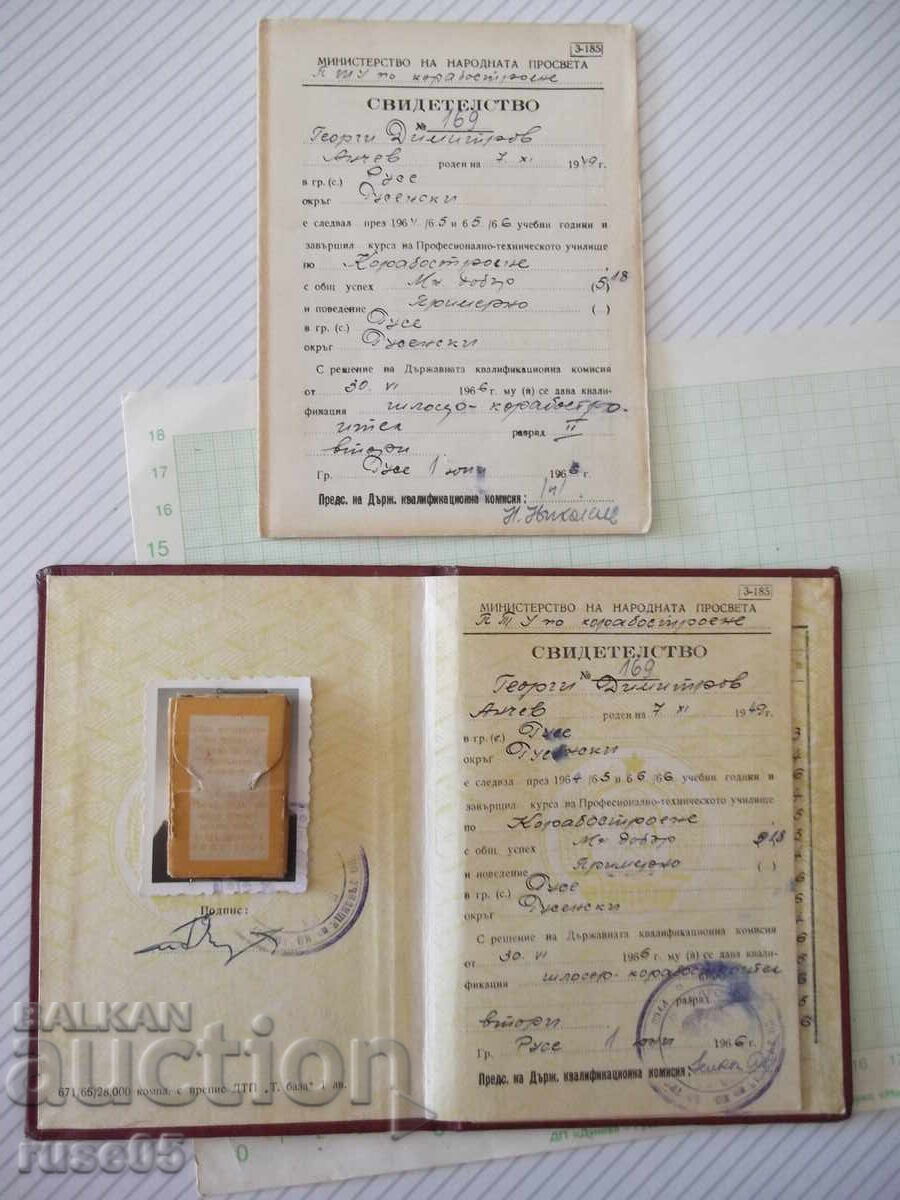 3-185
МИНИСТЕРСТВО НА НАРОДНАТА ПРОСВЕТА
П Т У по корабостроене
СВИДЕТЕЛСТВО
№ 169
Георги Димитров
Анчев роден на 7. XI 1949г.
в гр. (с.) Русе
окръг Русенски
е следвал през 1964/65 и 65/66 учебни години и
завършил курса на Професионално-техническото училище
по Корабостроене
с общ успех Мн. добър (5,18)
и поведение Примерно (-)
в гр. (с.) Русе
окръг Русенски
С решение на Държавната квалификационна комисия
от 30. VI 1966г. му (й) се дава квали-
фикация шлосер-корабостро-
ител разряд II
втори
Гр. Русе 1 юли 1966г.
Предс. на Държ. квалификационна комисия: /п/
Н. Николае
18
17
16
15
3-185
МИНИСТЕРСТВО НА НАРОДНАТА ПРОСВЕТА
П Т У по корабостроене
СВИДЕТЕЛСТВО
№ 169
Георги Димитров
Анчев роден на 7 XI 1949г.
в гр. (с.) Русе
окръг Русенски
е следвал през 1964/65 и 66/66 учебни години и
завършил курса на Професионално-техническото училище
по Корабостроене
с общ успех Мн добър
и поведение Примерно (-)
в гр. (с.) Русе
окръг Русенски
С решение на Държавната квалификационна комисия
от 30. VI 1966г. му (й) се дава квали-
фикация шлосер-корабостроител
разряд
втори
Гр. Русе 1 юли 1966г.
Предс. на Държ. квалификационна комисия:
Подпис:
671/65/28,000 компл. с врепие ДТП „Т. база" 1 лв.
BALKAN
auction
ruse05
0
16
17